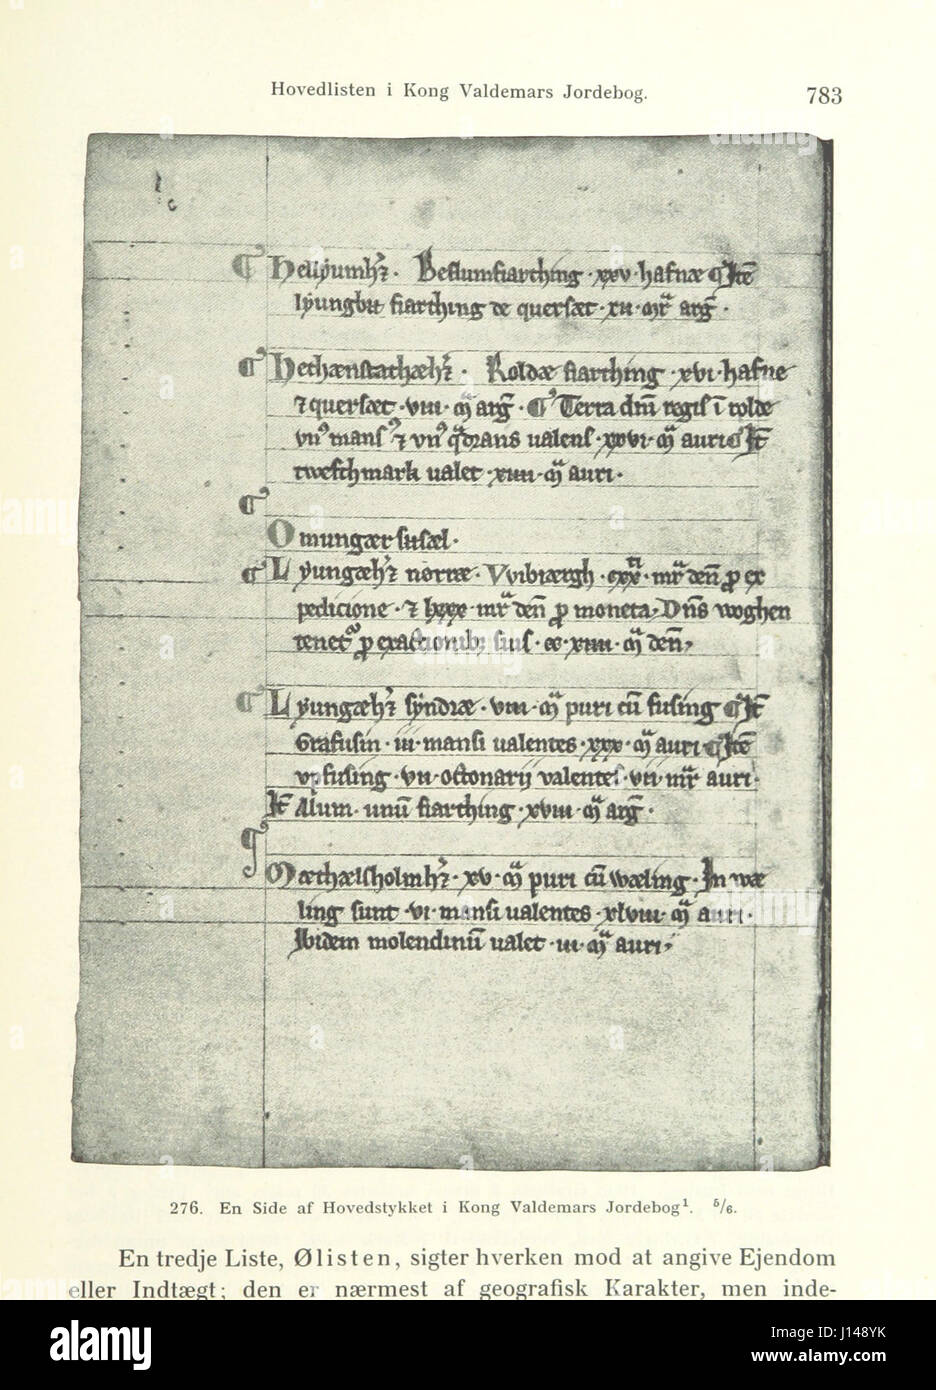 Hovedlisten i Kong Valdemars Jordebog.
783
Hellyumhẜ. Beslumfiarthing · xxv · hafnæ ¶ Itē
lyungbu fiarthing de quersæt · xii · mr̄ arḡ ·
Hethænstathæhẜ · Roldæ fiarthing · xvi · hafne
⁊ quersæt · viii · m̄ arḡ · ¶ Terra dn̄i regis ī rolde
valens · xxvi · m̄ auri ¶ It̄
twefthmark valet · xiiii · m̄ auri ·
Omungær susæl ·
Lyungæhẜ nørræ · Vvibiærgh · mr̄ den̄ ꝓ ex
pedicione · ⁊ lxxx · mr̄ den̄ ꝓ moneta, Dn̄s woghen
suis · cc · xiiii · m̄ den̄,
Lyungæhẜ syndræ · viii · m̄ puri cū fusing ¶ It̄
Grafusin · iii · mansi valentes · xxx · m̄ auri ¶ Itē
fusing · vii · octonarij valentes · vii · mr̄ auri ·
It̄ Alum · unū fiarthing · xviii · m̄ arḡ ·
Mæthælsholmhẜ · xv · m̄ puri cū wæling · In wæ
ling sunt · vi · mansi valentes · xlviii · m̄ auri ·
Ibidem molendinū valet · iii · m̄ auri,
276. En Side af Hovedstykket i Kong Valdemars Jordebog¹. ⁵/₆.
En tredje Liste, Ølisten, sigter hverken mod at angive Ejendom
eller Indtægt; den er nærmest af geografisk Karakter, men inde-
alamy
Image ID: J148YK
www.alamy.com